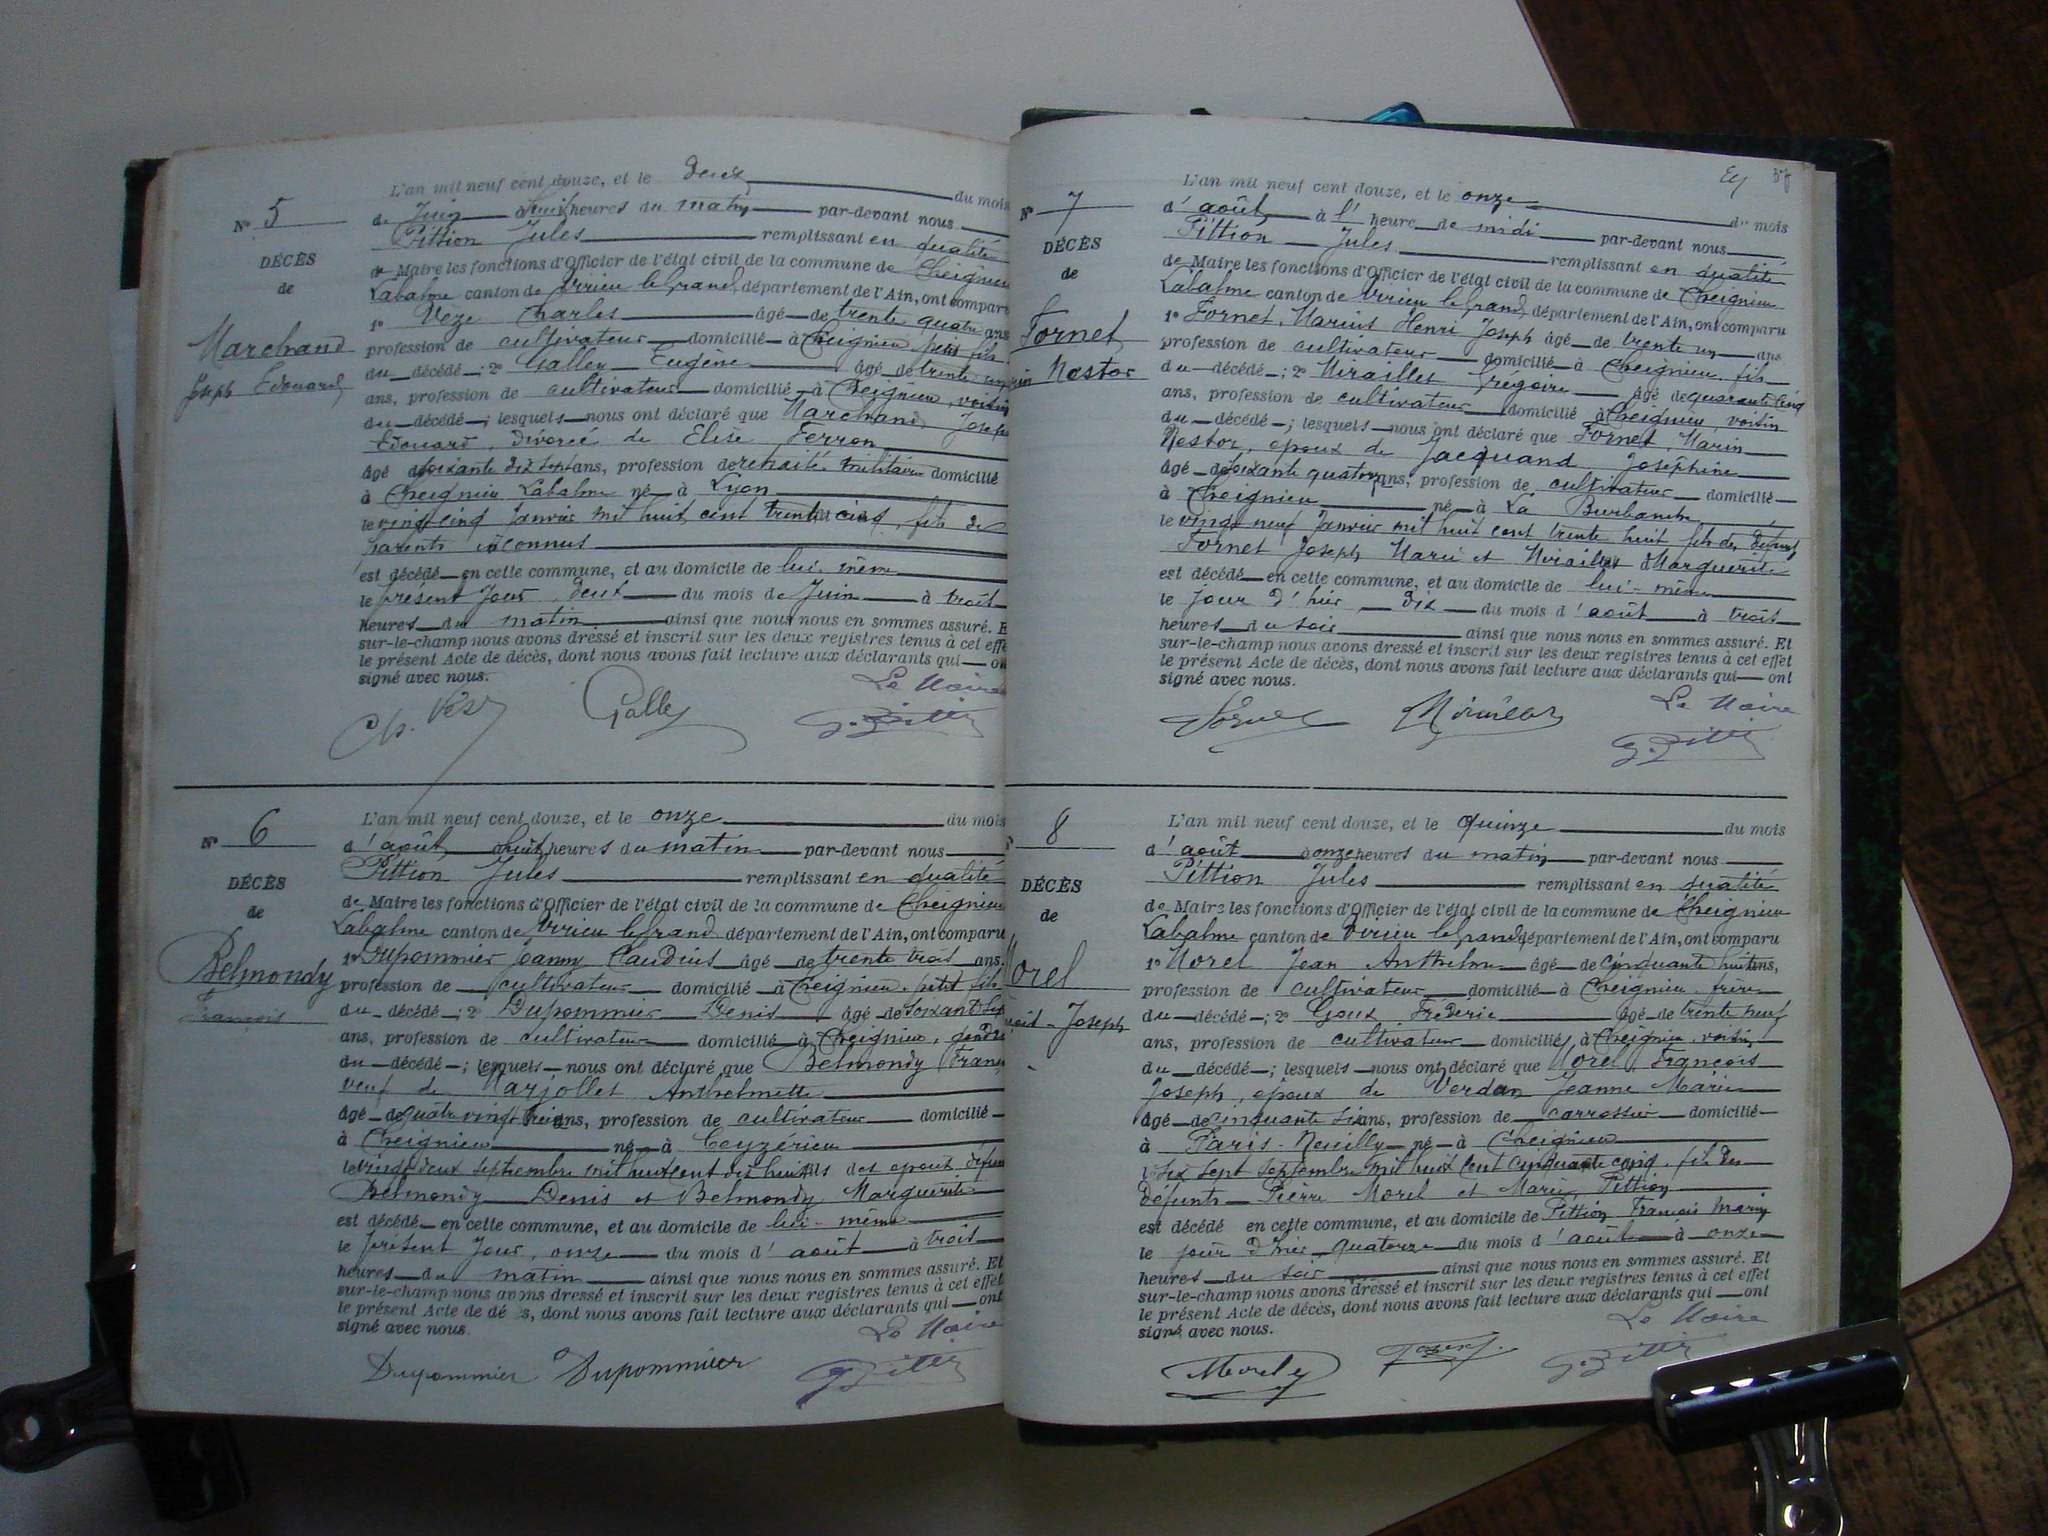 L'an mil neuf cent douze, et le deux du mois
N° 5
de Juin à huit heures du matin par-devant nous
Pittion Jules remplissant en qualité
DÉCÈS
de Maire les fonctions d'Officier de l'état civil de la commune de Cheignieu
de
Labalme canton de Virieu le Grand, département de l'Ain, ont comparu
1° Veze Charles âgé de trente quatre ans
Marchand
profession de cultivateur domicilié à Cheignieu petit fils
du décédé ; 2° Galley Eugène âgé de trente un
Joseph Edouard
ans, profession de cultivateur domicilié à Cheignieu, voisin
du décédé ; lesquels nous ont déclaré que Marchand Joseph
Edouard, divorcé de Elise Ferron
âgé de soixante dix sept ans, profession de retraité militaire domicilié
à Cheignieu Labalme né à Lyon
le vingt cinq Janvier mil huit cent trente cinq, fils de
parents inconnus
est décédé en cette commune, et au domicile de lui même
le présent Jour, deux du mois de Juin à trois
heures du matin ainsi que nous nous en sommes assuré. E
sur-le-champ nous avons dressé et inscrit sur les deux registres tenus à cet effe
le présent Acte de décès, dont nous avons fait lecture aux déclarants qui on
signé avec nous.
Le Maire
Ch. Veze Galley
L'an mil neuf cent douze, et le onze du mois
N° 6
d'août, à huit heures du matin par-devant nous
Pittion Jules remplissant en qualité
DÉCÈS
de Maire les fonctions d'Officier de l'état civil de la commune de Cheignieu
de
Labalme canton de Virieu le Grand département de l'Ain, ont comparu
Belmondy
1° Dupommier Joanny Claudius âgé de trente trois ans,
profession de cultivateur domicilié à Cheignieu, petit fils
François
du décédé ; 2° Dupommier Denis âgé de soixante sept
ans, profession de cultivateur domicilié à Cheignieu, gendre
du décédé ; lesquels nous ont déclaré que Belmondy Franç
veuf de Marjollet Anthelmette
âgé de quatre vingt treize ans, profession de cultivateur domicilié
à Cheignieu né à Ceyzérieu
le vingt deux septembre mil huit cent dix huit fils des époux défunts
Belmondy Denis et Belmondy Marguerite
est décédé en cette commune, et au domicile de lui-même
le présent Jour, onze du mois d'août à trois
heures du matin ainsi que nous nous en sommes assuré. Et
sur-le-champ nous avons dressé et inscrit sur les deux registres tenus à cet effet
le présent Acte de dé s, dont nous avons fait lecture aux déclarants qui ont
signé avec nous.
Le Maire
Dupommier Dupommier
37
L'an mil neuf cent douze, et le onze du mois
N° 7
d'août à l' heure de midi par-devant nous
Pittion Jules remplissant en qualité
DÉCÈS
de Maire les fonctions d'Officier de l'état civil de la commune de Cheignieu
de
Labalme canton de Virieu le Grand, département de l'Ain, ont comparu
1° Fornet, Marius Henri Joseph âgé de trente un ans
Fornet
profession de cultivateur domicilié à Cheignieu, fils
rin Nestor
du décédé ; 2° Miraillet Grégoire âgé de quarante cinq
ans, profession de cultivateur domicilié à Cheignieu, voisin
du décédé ; lesquels nous ont déclaré que Fornet, Marin
Nestor, époux de Jacquand Joséphine
âgé de soixante quatorze ans, profession de cultivateur domicilié
à Cheignieu né à La Burbanche
le vingt neuf Janvier mil huit cent trente huit fils des défunts
Fornet Joseph Marie et Miraillet Marguerite
est décédé en cette commune, et au domicile de lui-même
le jour d'hier, dix du mois d'août à trois
heures du soir ainsi que nous nous en sommes assuré. Et
sur-le-champ nous avons dressé et inscrit sur les deux registres tenus à cet effet
le présent Acte de décès, dont nous avons fait lecture aux déclarants qui ont
signé avec nous.
Le Maire
L'an mil neuf cent douze, et le quinze du mois
8
d'août à onze heures du matin par-devant nous
Pittion Jules remplissant en qualité
DÉCÈS
de Maire les fonctions d'Officier de l'état civil de la commune de Cheignieu
de
Labalme canton de Virieu le Grand département de l'Ain, ont comparu
orel
1° Morel Jean Anthelme âgé de cinquante huit ans,
profession de cultivateur domicilié à Cheignieu, frère
çois-Joseph
du décédé ; 2° Goux Fréderic âgé de trente neuf
ans, profession de cultivateur domicilié à Cheignieu, voisin
du décédé ; lesquels nous ont déclaré que Morel, François
Joseph, époux de Verdan Jeanne Marie
âgé de cinquante six ans, profession de carrossier domicilié
à Paris-Neuilly né à Cheignieu
le dix sept septembre mil huit cent cinquante cinq, fils des
défunts Pierre Morel et Marie Pittion
est décédé en cette commune, et au domicile de Pittion François Marin
le jour d'hier quatorze du mois d'août à onze
heures du soir ainsi que nous nous en sommes assuré. Et
sur-le-champ nous avons dressé et inscrit sur les deux registres tenus à cet effet
le présent Acte de décès, dont nous avons fait lecture aux déclarants qui ont
signé avec nous.
Le Maire
Morel